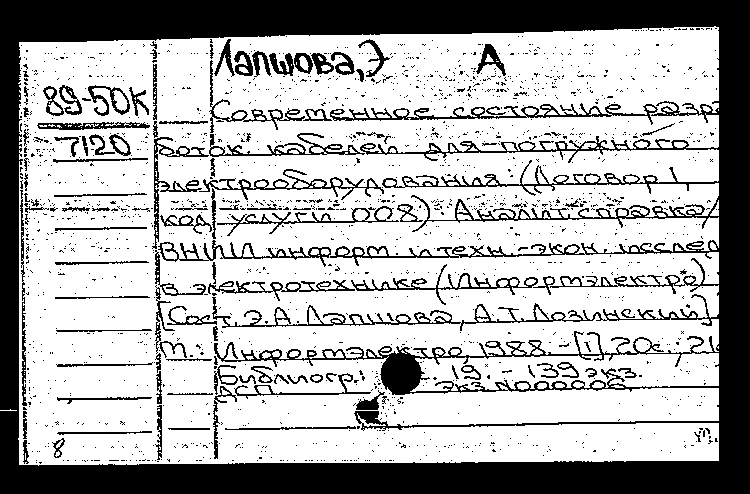 Лапшова, Э А
89-50К
7120
Современное состояние разра
боток кабелей для погружного
электрооборудования: (Договор 1,
код услуги 008): Аналит. справка /
ВНИИ информ. и техн.-экон. исслед
в электротехнике (Информэлектро)
[Сост. Э.А. Лапшова, А.Т. Лозинский]
М.: Информэлектро, 1988. - [1], 20с.; 21
Библиогр.: 19. - 139 экз.
ДСП экз. N000006
8